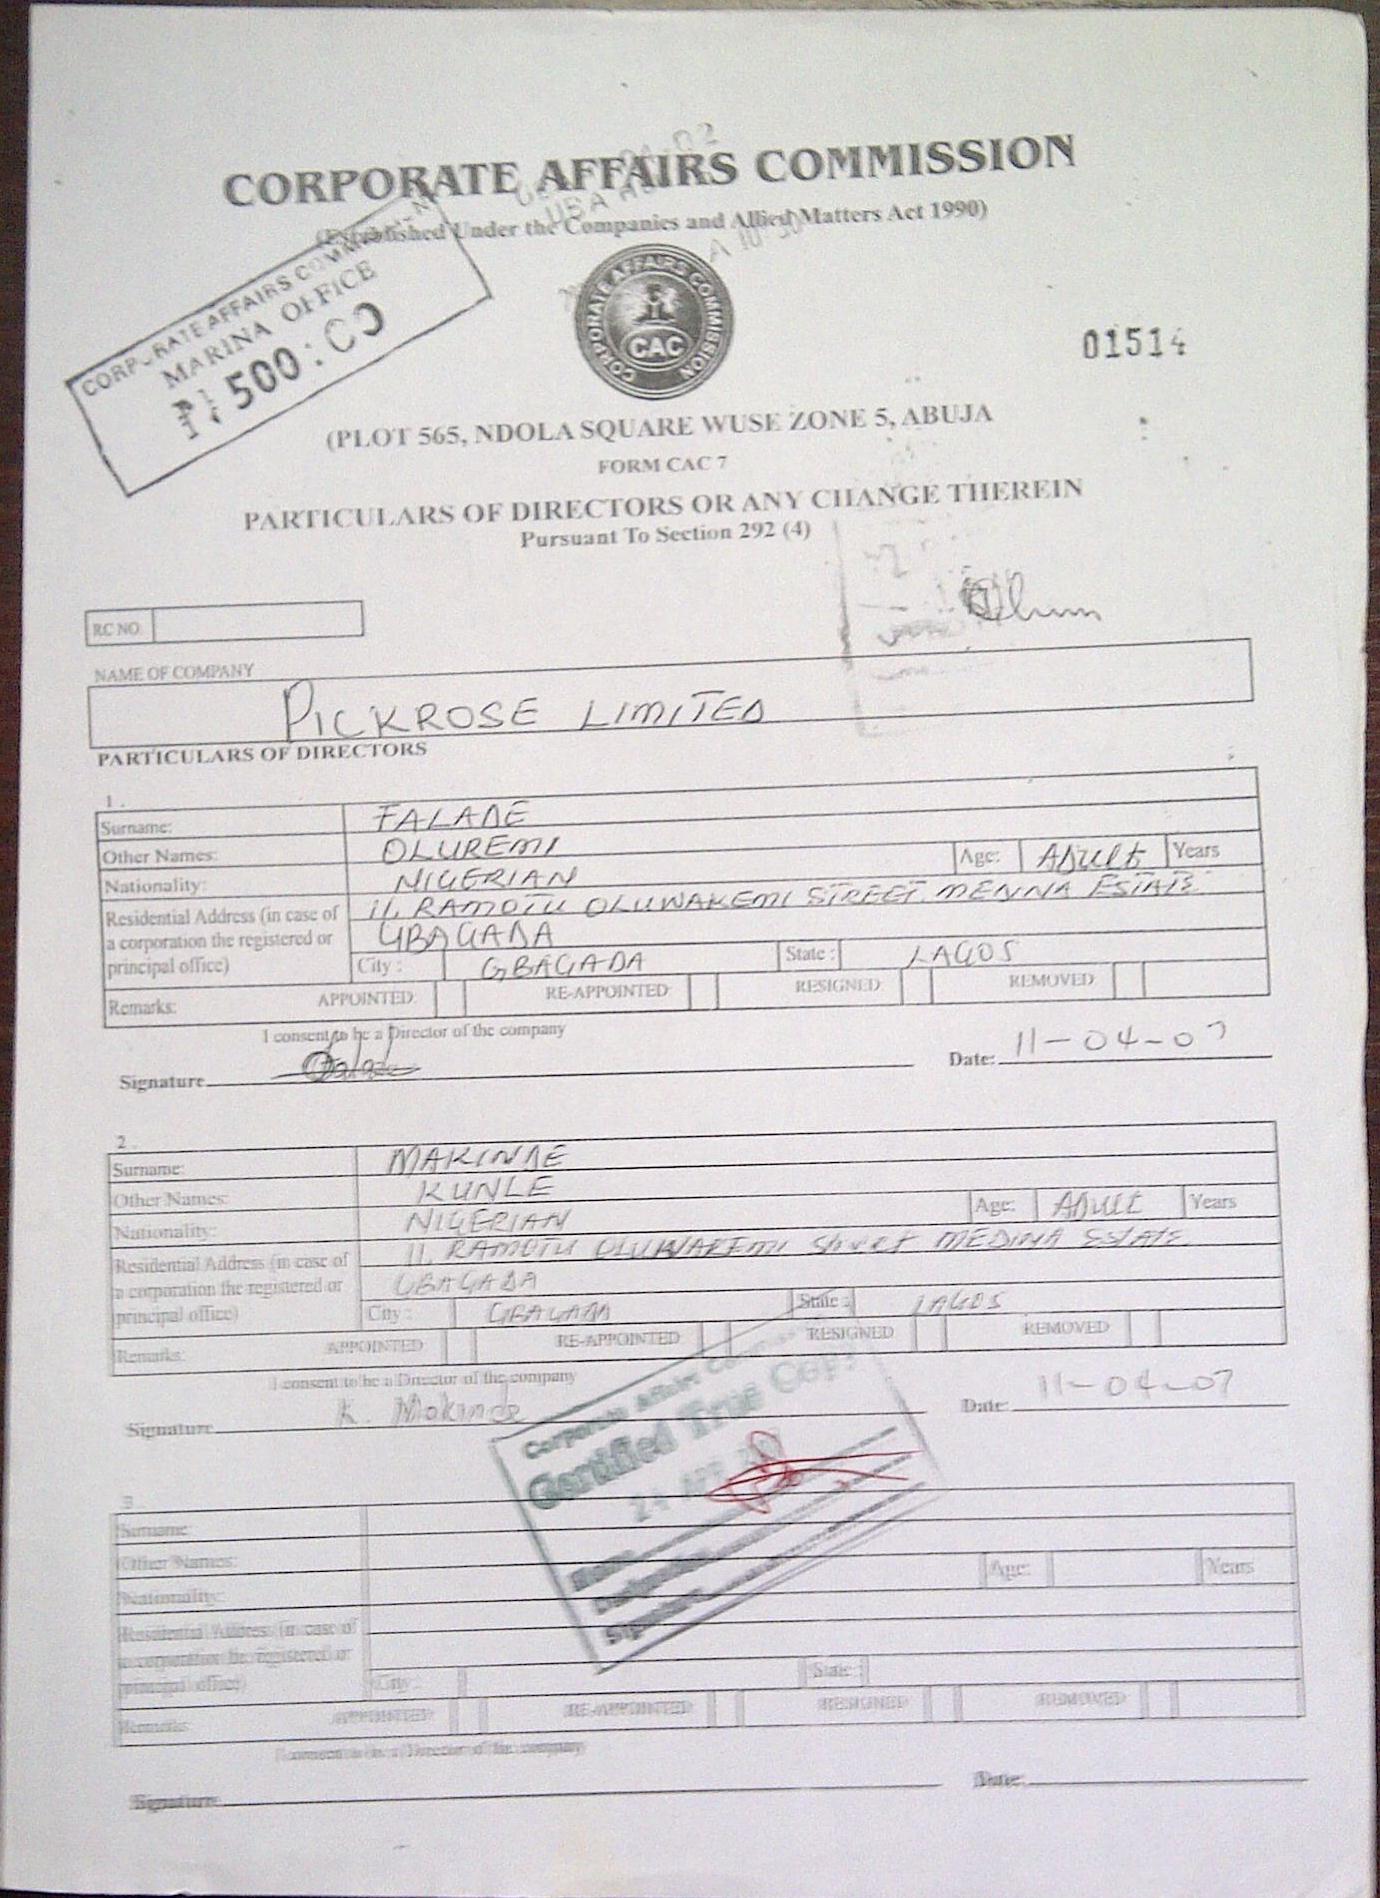 CORPORATE AFFAIRS COMMISSION
(Established Under the Companies and Allied Matters Act 1990)
CORPORATE AFFAIRS COMMISSION
MARINA OFFICE
₦ 500:00
CORPORATE AFFAIRS COMMISSION
CAC
01514
(PLOT 565, NDOLA SQUARE WUSE ZONE 5, ABUJA
FORM CAC 7
PARTICULARS OF DIRECTORS OR ANY CHANGE THEREIN
Pursuant To Section 292 (4)
RC NO.
NAME OF COMPANY
PICKROSE LIMITED
PARTICULARS OF DIRECTORS
1.
Surname: FALADE
Other Names: OLUREMI Age: ADULT Years
Nationality: NIGERIAN
Residential Address (in case of 11, RAMOTU OLUWAKEMI STREET, MEDINA ESTATE
a corporation the registered or GBAGADA
principal office) City : GBAGADA State : LAGOS
Remarks: APPOINTED RE-APPOINTED RESIGNED REMOVED
I consent to be a Director of the company
Signature Date: 11-04-07
2.
Surname: MAKINDE
Other Names: KUNLE Age: ADULT Years
Nationality: NIGERIAN
Residential Address (in case of 11, RAMOTU OLUWAKEMI Street MEDINA ESTATE
a corporation the registered or GBAGADA
principal office) City : GBAGADA State : LAGOS
Remarks: APPOINTED RE-APPOINTED RESIGNED REMOVED
I consent to be a Director of the company
Signature K. Makinde Date: 11-04-07
Corporate Affairs
Certified True Copy
24 APR
Name
Designation
Signature
3.
Surname:
Other Names: Age: Years
Nationality:
Residential Address (in case of
a corporation the registered or
principal office) City : State :
Remarks: APPOINTED RE-APPOINTED RESIGNED REMOVED
I consent to be a Director of the company
Signature Date: